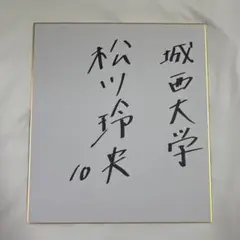 城西大学
松川玲央
10